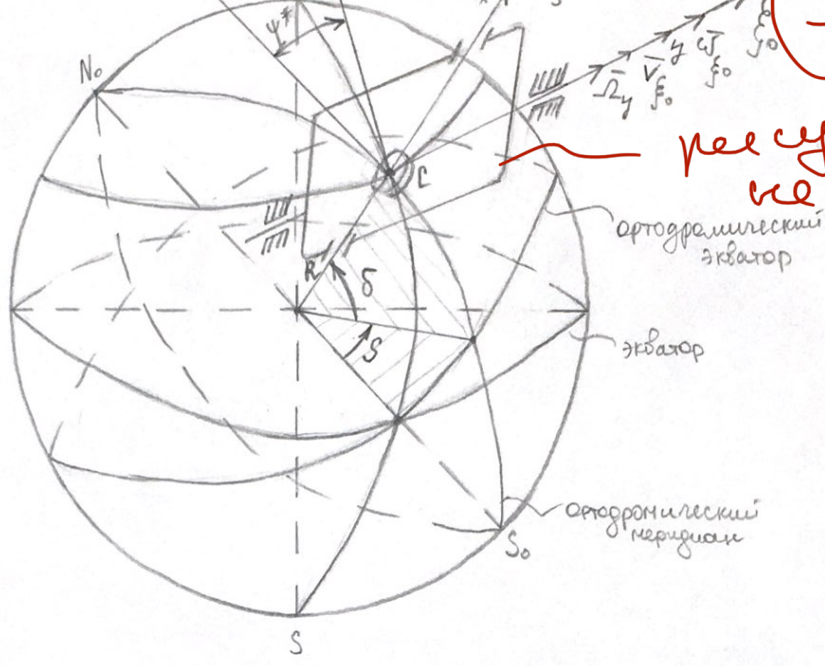 ψ*
N₀
Ω̄y V̄ξ₀ y ω̄ξ₀ ξ₀
C
рису
не
ортодромический
экватор
R
δ
экватор
S
ортодромический
меридиан
S₀
S